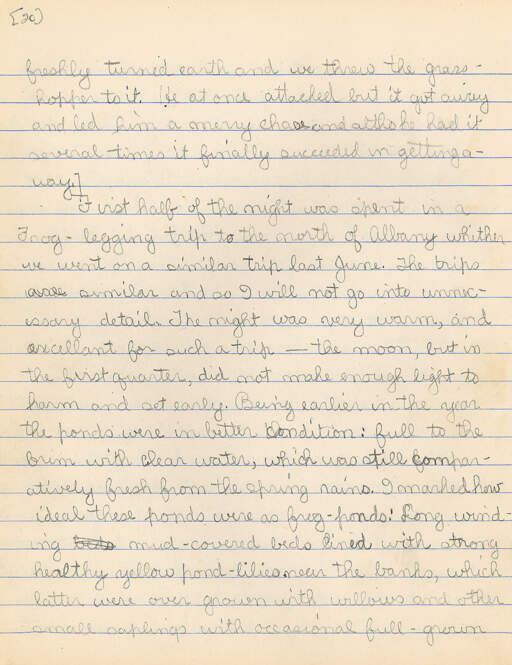 [20]
freshly turned earth and we threw the grass-
hopper to it. He at once attached but it got away
and led him a merry chase and altho he had it
several times it finally succeeded in getting a-
way.]
First half of the night was spent in a
Frog-legging trip to the north of Albany whither
we went on a similar trip last June. The trips
were similar and so I will not go into unnec-
essary detail. The night was very warm, and
excellant for such a trip — the moon, but in
the first quarter, did not make enough light to
harm and set early. Being earlier in the year
the ponds were in better condition: full to the
brim with clear water, which was still compar-
atively fresh from the spring rains. I marked how
ideal these ponds were as frog-ponds: Long wind-
ing beds mud-covered beds lined with strong
healthy yellow pond-lilies near the banks, which
latter were over grown with willows and other
small saplings with occasional full-grown